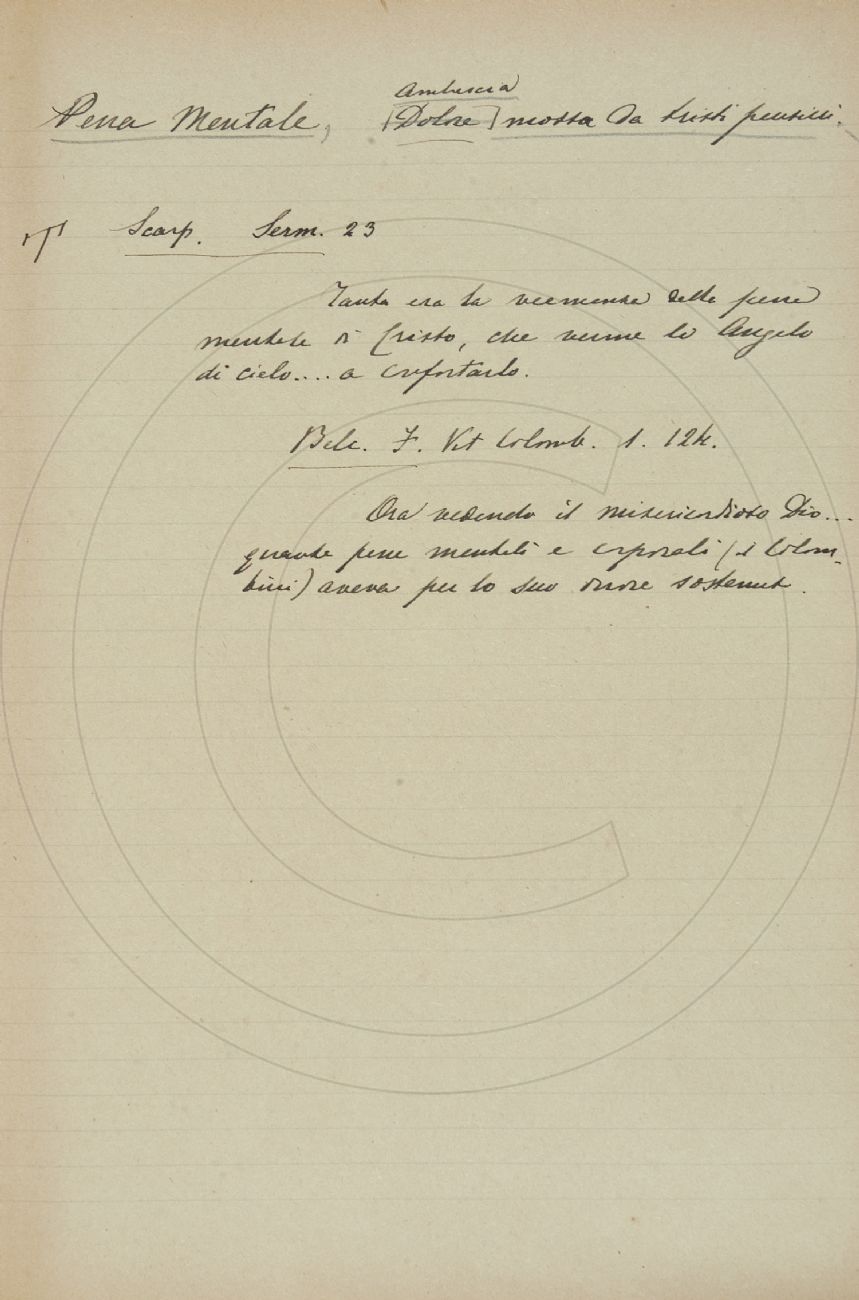 Ambascia
Pena Mentale, [Dolore] mossa da tristi pensieri.
Scarp. Serm. 23
Tanta era la veemenza delle pene
mentali di Cristo, che venne lo Angelo
di cielo.... a confortarlo.
Belc. F. Vit Colomb. 1. 124.
Ora vedendo il misericordioso Dio...
quante pene mentali e corporali (il Colom-
bini) aveva per lo suo onore sostenute.